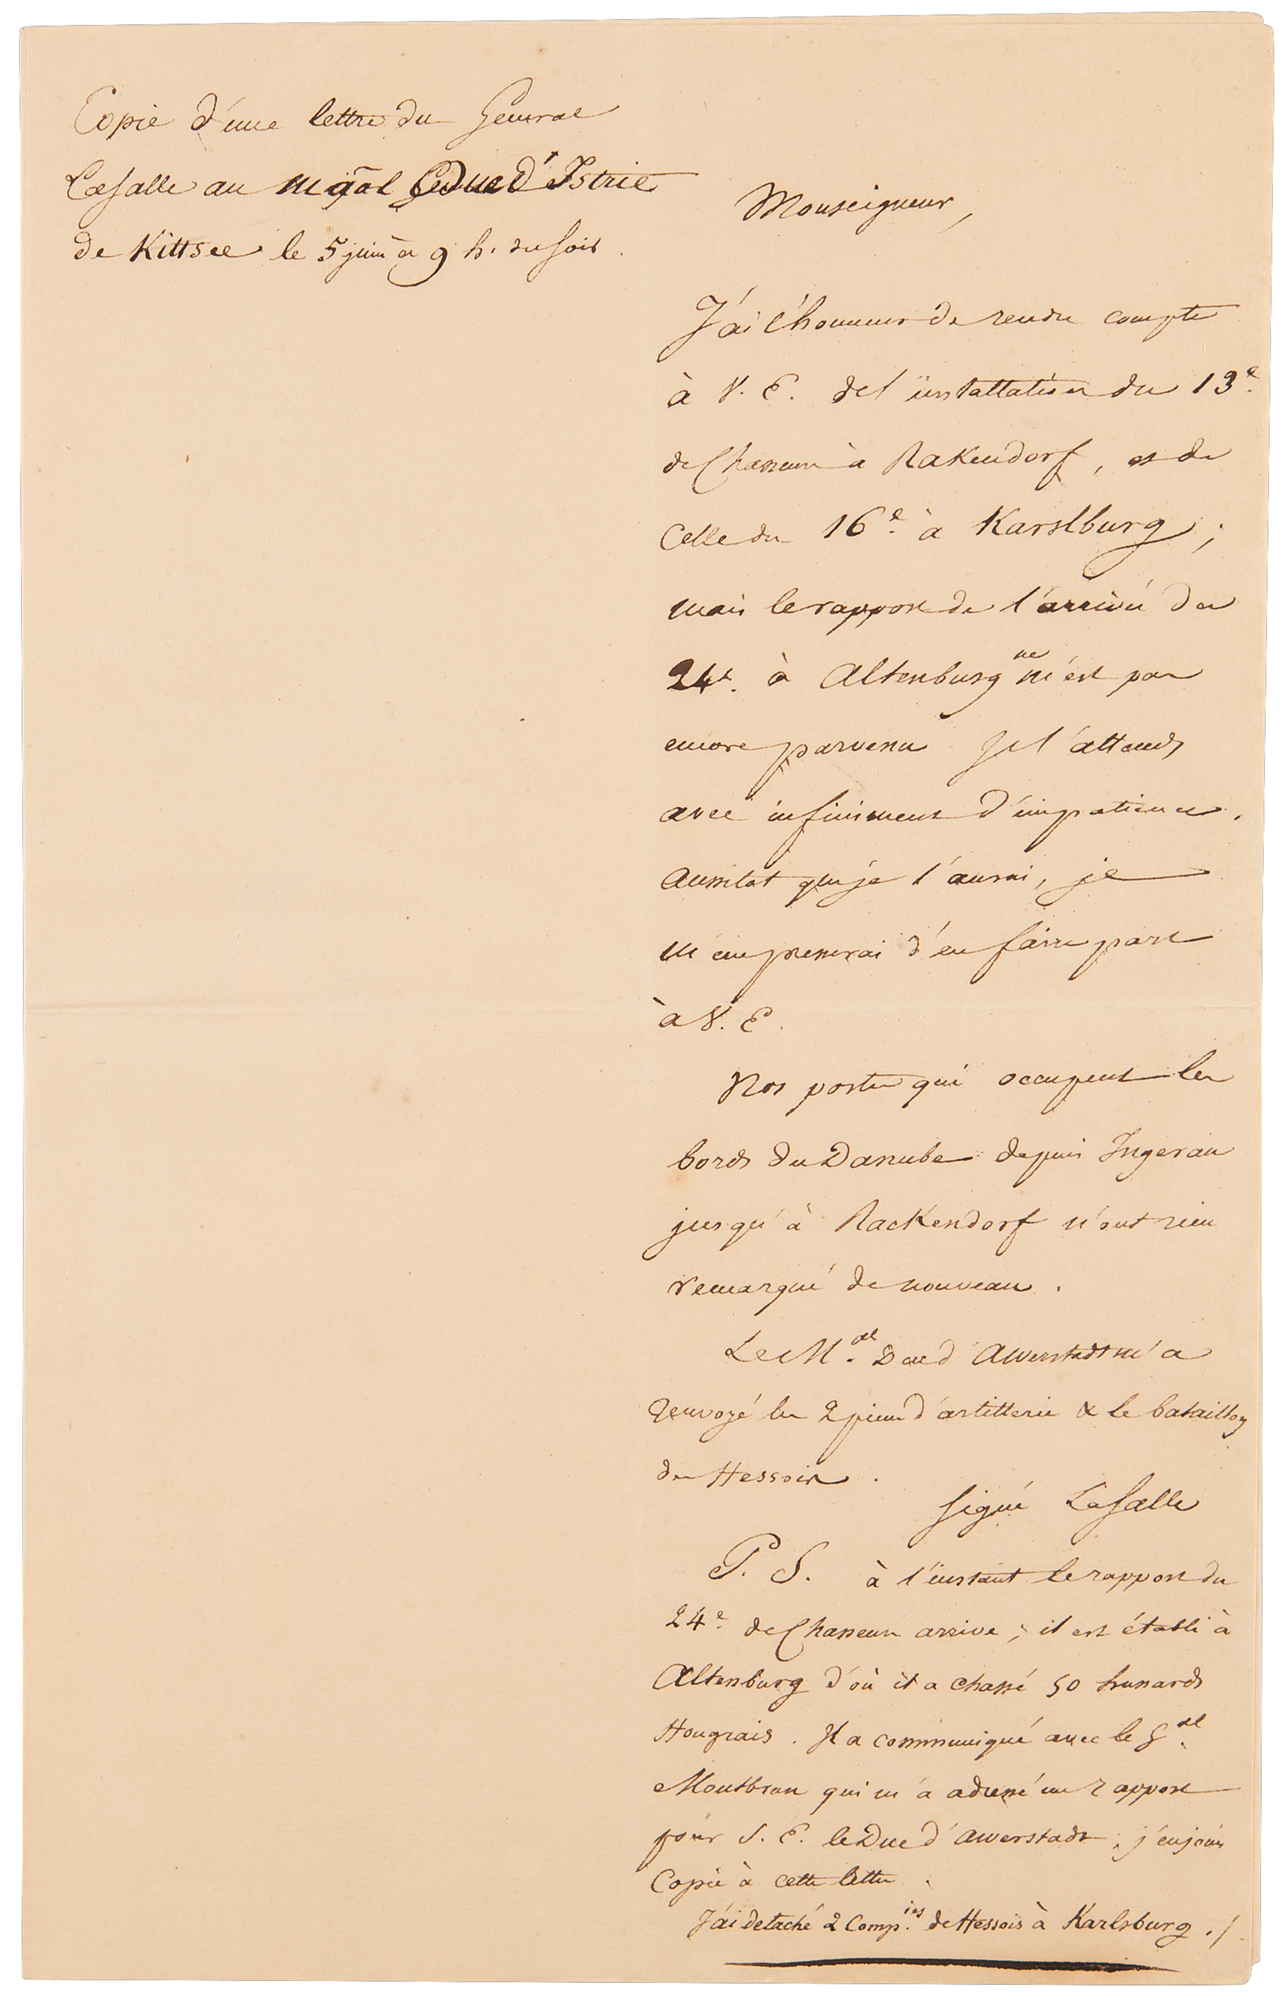 Copie d'une lettre du General
LaSalle au Mãal Le Duc d'Istrie
de Kittsee le 5 juin à 9 h. du soir.
Monseigneur,
J'ai l'honneur de rendre compte
à V. E. de l'installation du 13e.
de Chasseurs à Rakendorf, et de
Celle du 16e. à Karslburg;
mais le rapport de l'arrivée du
24e. à Altenburg ne m'est pas
encore parvenu Je l'attends
avec infiniment d'impatience.
Aussitot que je l'aurai, je
m'empresserai d'en faire part
à V. E.
Nos postes qui occupent les
bords du Danube depuis Ingerau
jusqu'à Rackendorf n'ont rien
remarqué de nouveau.
Le M.al Duc d'Awerstadt m'a
renvoyé les 2 pieces d'artillerie & le bataillon
des Hessois.
Signé LaSalle
P. S. à l'instant le rapport du
24e. de Chasseurs arrive; il est établi à
Altenburg d'où il a chassé 50 hussards
Hongrais. Il a communiqué avec le G.al
Montbrun qui m'a adressé un rapport
pour S. E. le Duc d'Awerstadt, j'en joins
Copie à cette lettre.
J'ai detaché 2 Comp.ies de Hessois à Karlsburg ./.